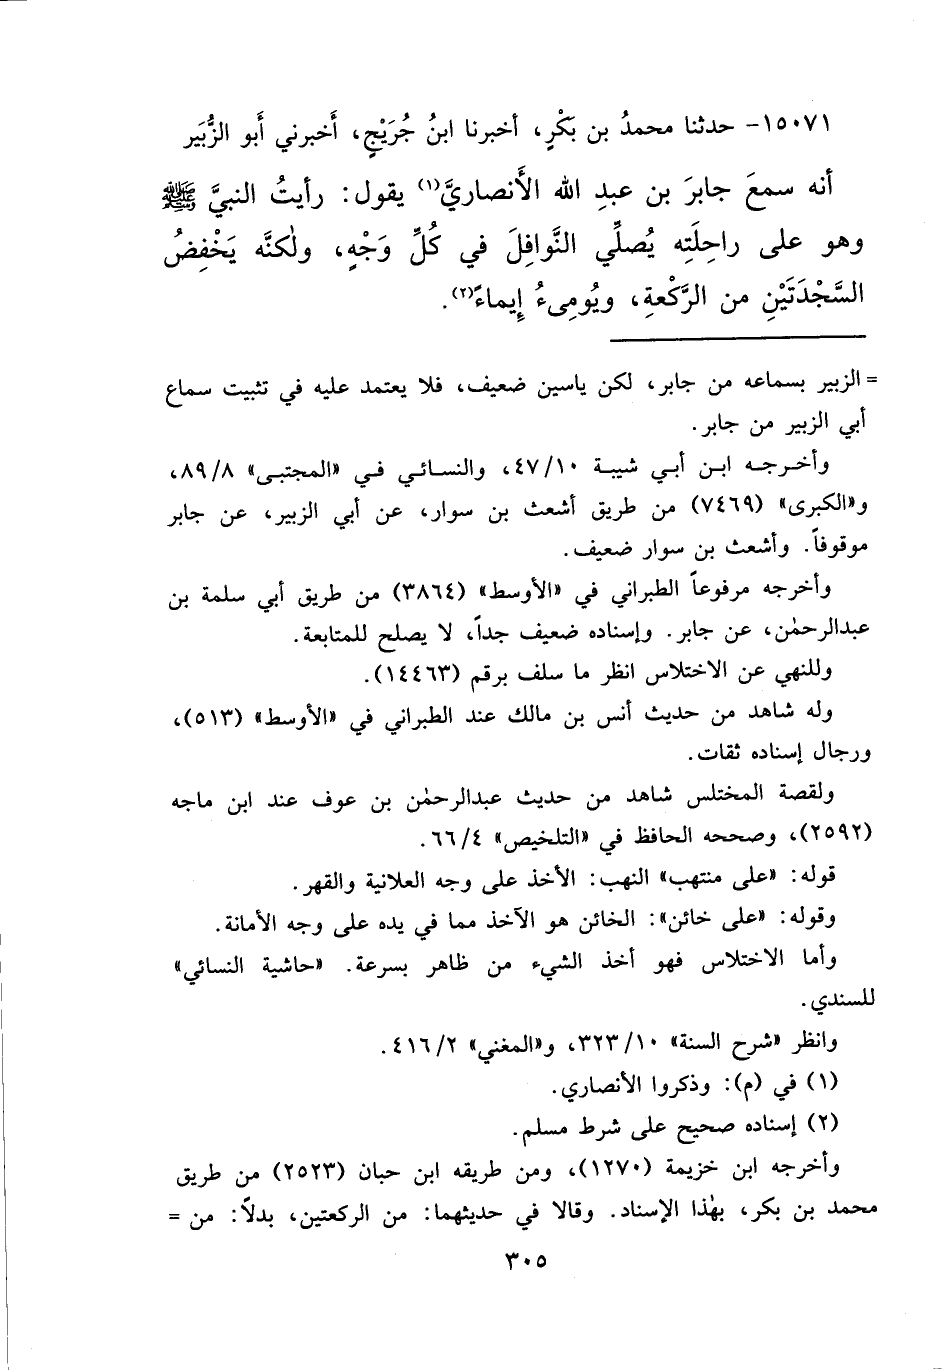 ١٥٠٧١- حدثنا محمدُ بن بَكْرٍ، أخبرنا ابنُ جُرَيْجٍ، أَخبرني أَبو الزُّبَير
أنه سمعَ جابرَ بن عبدِ الله الأَنصاريَّ(١) يقول: رأَيتُ النبيَّ ﷺ
وهو على راحِلَتِه يُصلِّي النَّوافِلَ في كُلِّ وَجْهٍ، ولٰكنَّه يَخْفِضُ
السَّجْدَتَيْنِ من الرَّكْعةِ، ويُومِىءُ إِيماءً(٢).
= الزبير بسماعه من جابر، لكن ياسين ضعيف، فلا يعتمد عليه في تثبيت سماع
أبي الزبير من جابر.
وأخرجه ابن أبي شيبة ٤٧/١٠، والنسائي في «المجتبى» ٨٩/٨،
و«الكبرى» (٧٤٦٩) من طريق أشعث بن سوار، عن أبي الزبير، عن جابر
موقوفاً. وأشعث بن سوار ضعيف.
وأخرجه مرفوعاً الطبراني في «الأوسط» (٣٨٦٤) من طريق أبي سلمة بن
عبدالرحمٰن، عن جابر. وإسناده ضعيف جداً، لا يصلح للمتابعة.
وللنهي عن الاختلاس انظر ما سلف برقم (١٤٤٦٣).
وله شاهد من حديث أنس بن مالك عند الطبراني في «الأوسط» (٥١٣)،
ورجال إسناده ثقات.
ولقصة المختلس شاهد من حديث عبدالرحمٰن بن عوف عند ابن ماجه
(٢٥٩٢)، وصححه الحافظ في «التلخيص» ٦٦/٤.
قوله: «على منتهب» النهب: الأخذ على وجه العلانية والقهر.
وقوله: «على خائن»: الخائن هو الآخذ مما في يده على وجه الأمانة.
وأما الاختلاس فهو أخذ الشيء من ظاهر بسرعة. «حاشية النسائي»
للسندي.
وانظر «شرح السنة» ٣٢٣/١٠، و«المغني» ٤١٦/٢.
(١) في (م): وذكروا الأنصاري.
(٢) إسناده صحيح على شرط مسلم.
وأخرجه ابن خزيمة (١٢٧٠)، ومن طريقه ابن حبان (٢٥٢٣) من طريق
محمد بن بكر، بهٰذا الإسناد. وقالا في حديثهما: من الركعتين، بدلاً: من =
٣٠٥